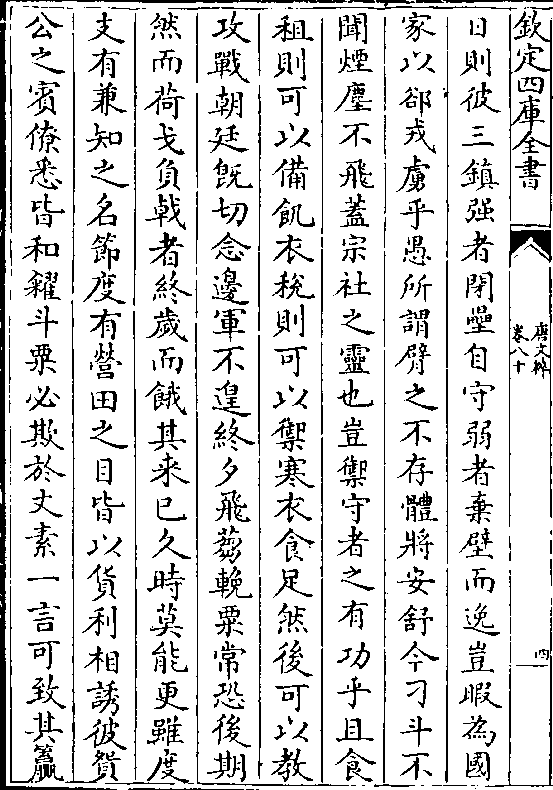 欽定四庫全書
唐文粹
卷八十
四
日則彼三鎮强者閉壘自守弱者棄壁而逸豈暇為國
家以郤戎虜乎愚所謂臂之不存體將安舒今刁斗不
聞煙塵不飛蓋宗社之靈也豈禦守者之有功乎且食
租則可以備飢衣稅則可以禦寒衣食足然後可以教
攻戰朝廷旣切念邊軍不遑終夕飛芻輓粟常恐後期
然而荷戈負戟者終歲而餓其来已久時莫能更雖度
支有兼知之名節度有營田之目皆以貨利相誘彼貿
公之賓僚悉皆和糴斗粟必欺於丈素一言可致其籯